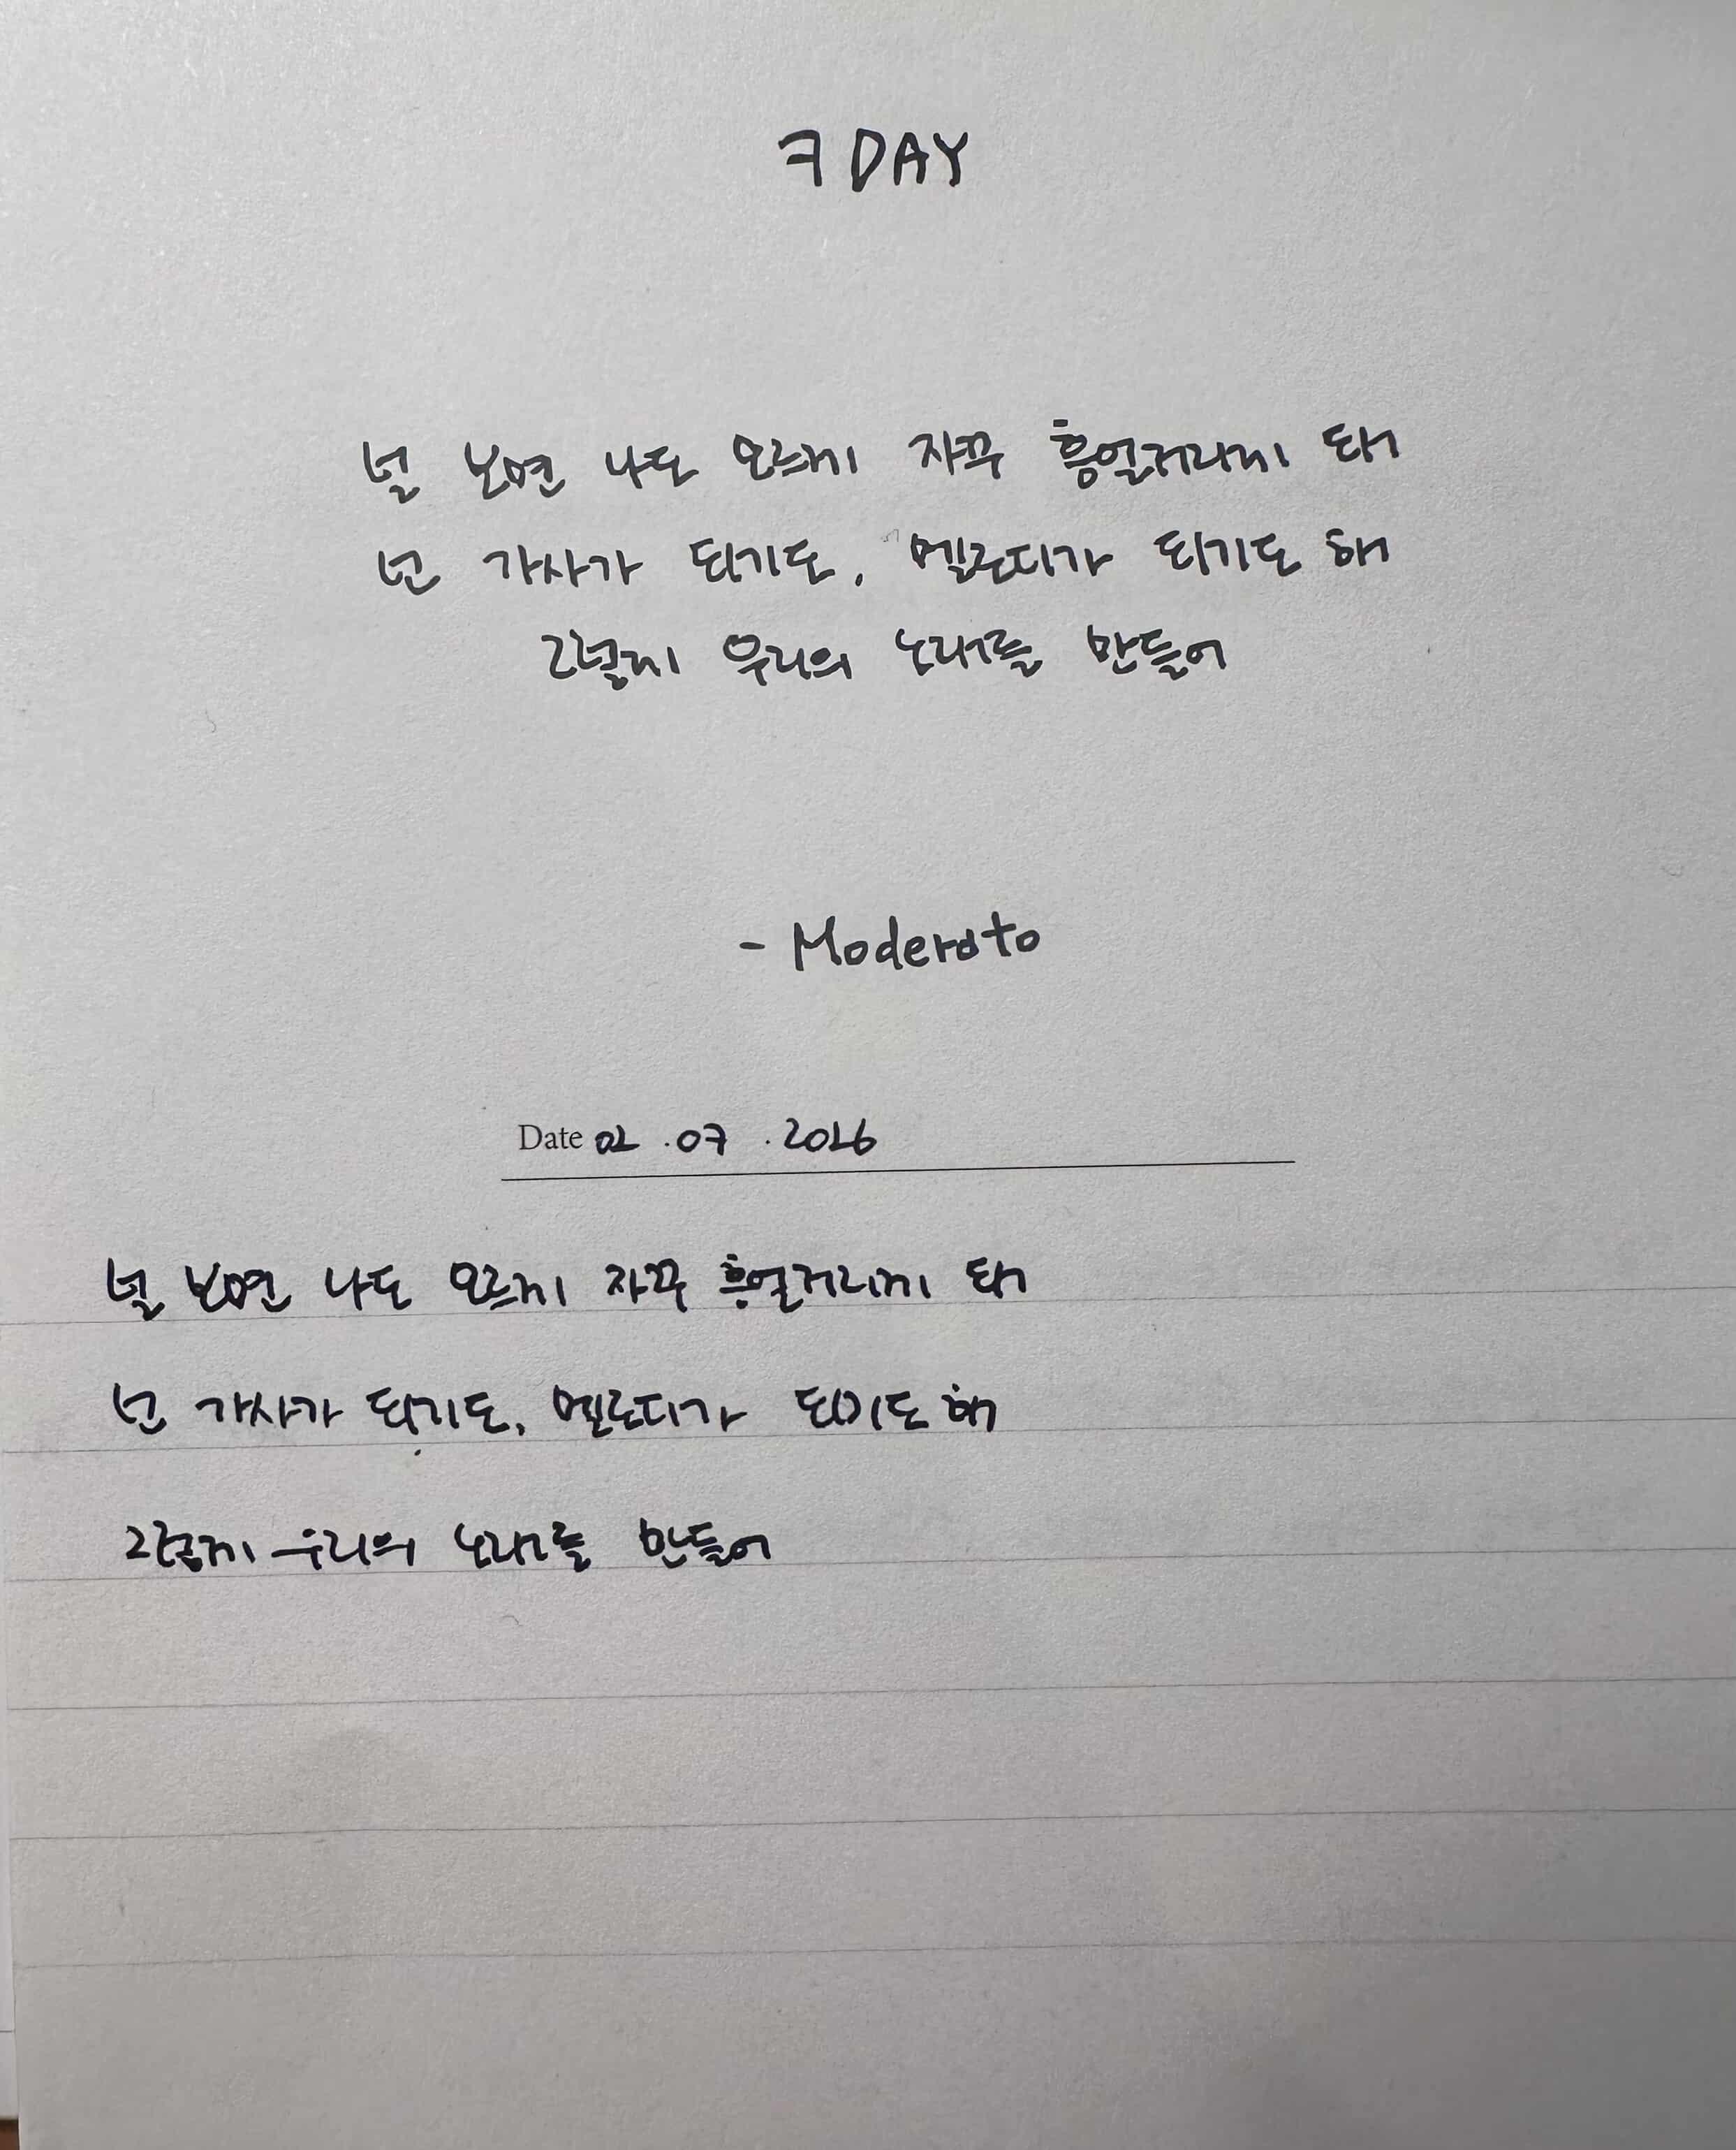 7 DAY
널 보면 나도 모르게 자꾸 흥얼거리게 돼
넌 가사가 되기도, 멜로디가 되기도 해
그렇게 우리의 노래를 만들어
- Moderato
Date 02 . 07 . 2026
널 보면 나도 모르게 자꾸 흥얼거리게 돼
넌 가사가 되기도, 멜로디가 되기도 해
그렇게 우리의 노래를 만들어